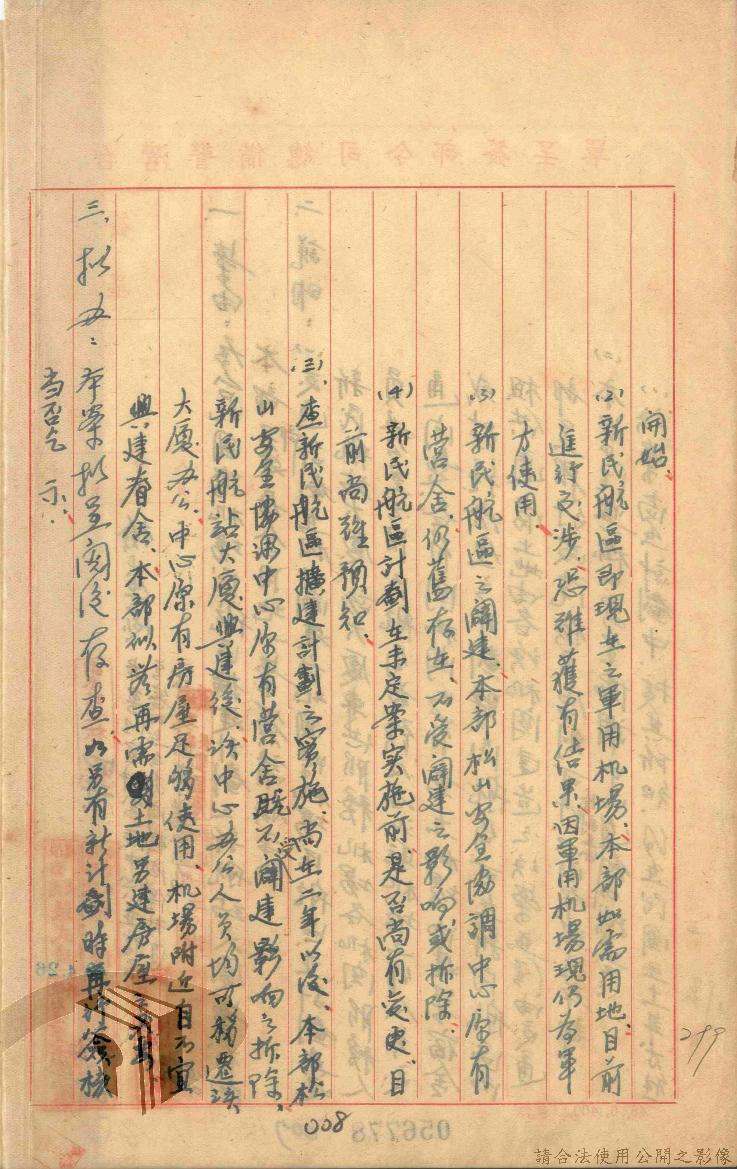 開始。
(2)新民航區即現在之軍用机場、本部如需用地、目前
進行交涉、恐難獲有结果、因軍用机場現仍為軍
方使用。
(3)新民航區之闢建、本部松山安全協調中心原有
营舍、仍舊存在、不受闢建之影响或拆除。
(4)新民航區計劃在未定案实施前、是否尚有变更、目
前尚難預知。
(三)、查新民航區擴建計劃之實施、尚在二年以後、本部松
山安全協調中心原有营舍既不受闢建影响之拆除、
新民航站大廈興建後、該中心办公人員均可移遷該
大廈办公、中心原有房屋足够使用、机場附近自不宜
興建眷舍、本部似無再需土地另建房屋之
三、拟办：本案拟呈閱後存查、如另有新計劃時再行簽核
当否乞 示：
299
008
056778
4.26
請合法使用公開之影像